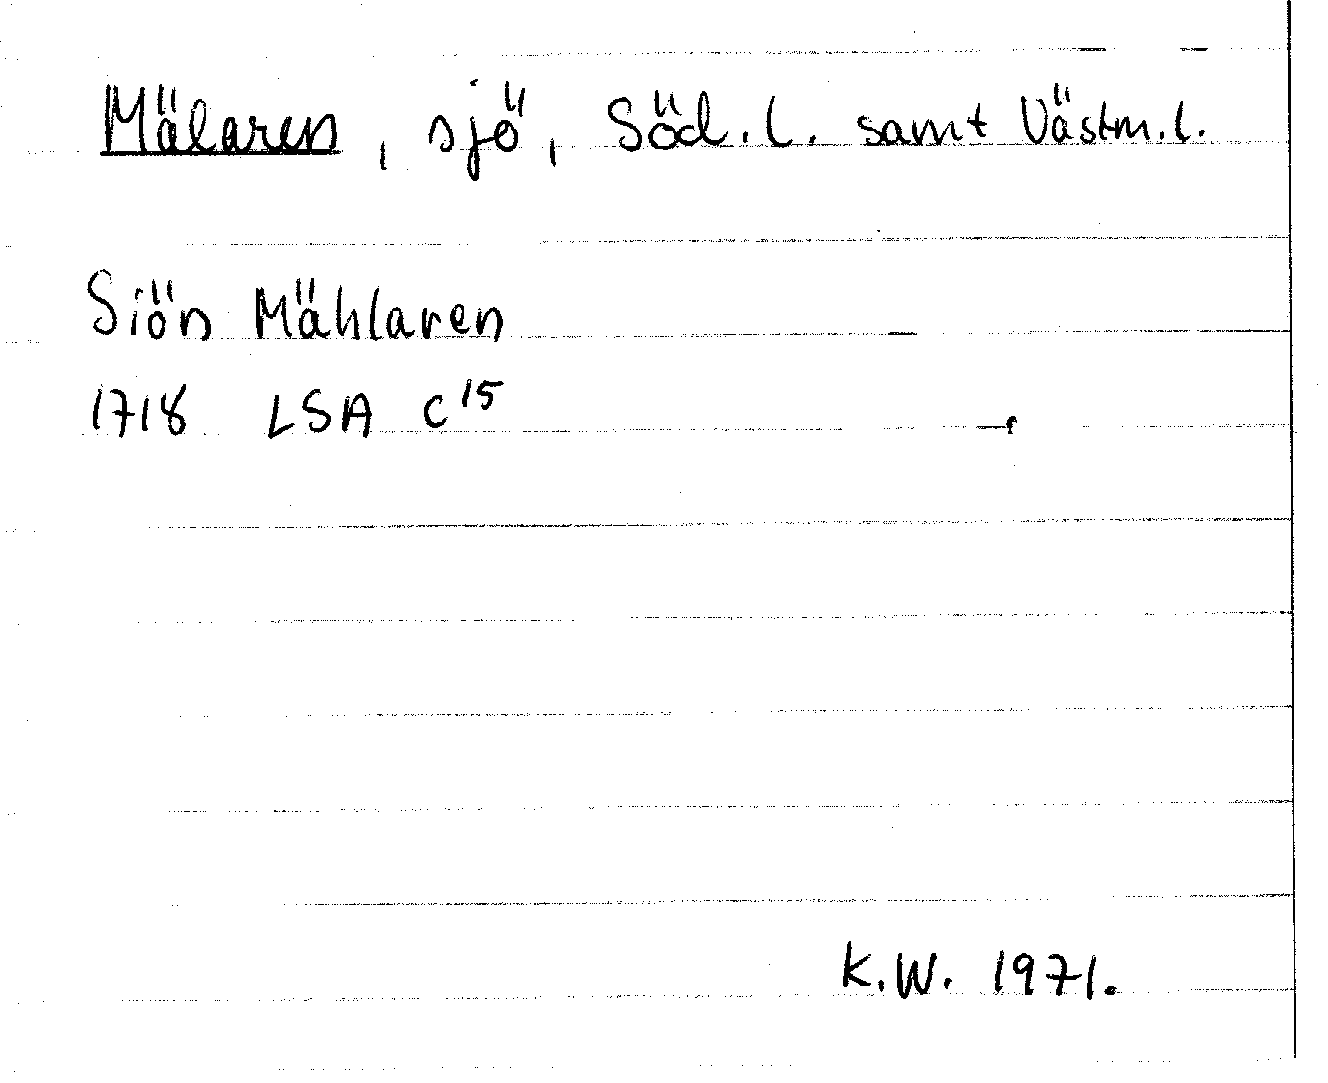 Mälaren, sjö, Söd.l. samt Västm.l.
Siön Mählaren
1718 LSA C15
K.W. 1971.